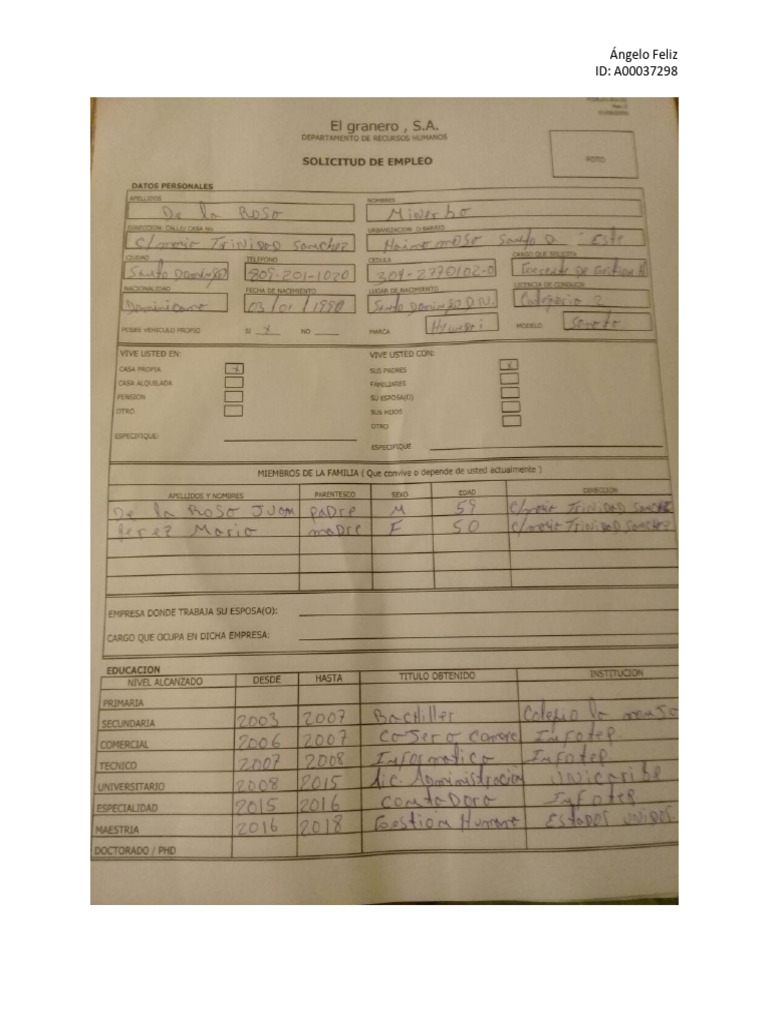 Ángelo Feliz
ID: A00037298
El granero , S.A.
DEPARTAMENTO DE RECURSOS HUMANOS
SOLICITUD DE EMPLEO
FOTO
DATOS PERSONALES
APELLIDOS NOMBRES
De la Roso Minerbo
DIRECCION: CALLE/ CASA No. URBANIZACION O BARRIO
C/maria TRINIDAD Sanchez Haina moso Santo D. Este
CIUDAD TELEFONO CEDULA CARGO QUE SOLICITA
Santo Domingo 809-201-1020 309-2770102-0
NACIONALIDAD FECHA DE NACIMIENTO LUGAR DE NACIMIENTO LICENCIA DE CONDUCIR
Dominicano 03/01/1990 Santo Domingo D.N. Categorio 2
POSEE VEHICULO PROPIO SI x NO MARCA Hyundai MODELO Sonato
VIVE USTED EN: VIVE USTED CON:
CASA PROPIA x SUS PADRES x
CASA ALQUILADA FAMILIARES
PENSION SU ESPOSA(O)
OTRO SUS HIJOS
OTRO
ESPECIFIQUE: ESPECIFIQUE
MIEMBROS DE LA FAMILIA ( Que convive o depende de usted actualmente )
APELLIDOS Y NOMBRES PARENTESCO SEXO EDAD DIRECCION
De la Roso JUan padre M 59 C/maria TRINIDAD Sanchez
Perez Mario madre F 50 C/maria TRINIDAD Sanchez
EMPRESA DONDE TRABAJA SU ESPOSA(O):
CARGO QUE OCUPA EN DICHA EMPRESA:
EDUCACION
NIVEL ALCANZADO DESDE HASTA TITULO OBTENIDO INSTITUCION
PRIMARIA
SECUNDARIA 2003 2007 Bachiller Colegio la
COMERCIAL 2006 2007 Cajero Infotep
TECNICO 2007 2008 Informatica Infotep
UNIVERSITARIO 2008 2015 Lic. Administración Unicaribe
ESPECIALIDAD 2015 2016 Contadora Infotep
MAESTRIA 2016 2018 Gestion Humano ESTADOS UNIDOS
DOCTORADO / PHD